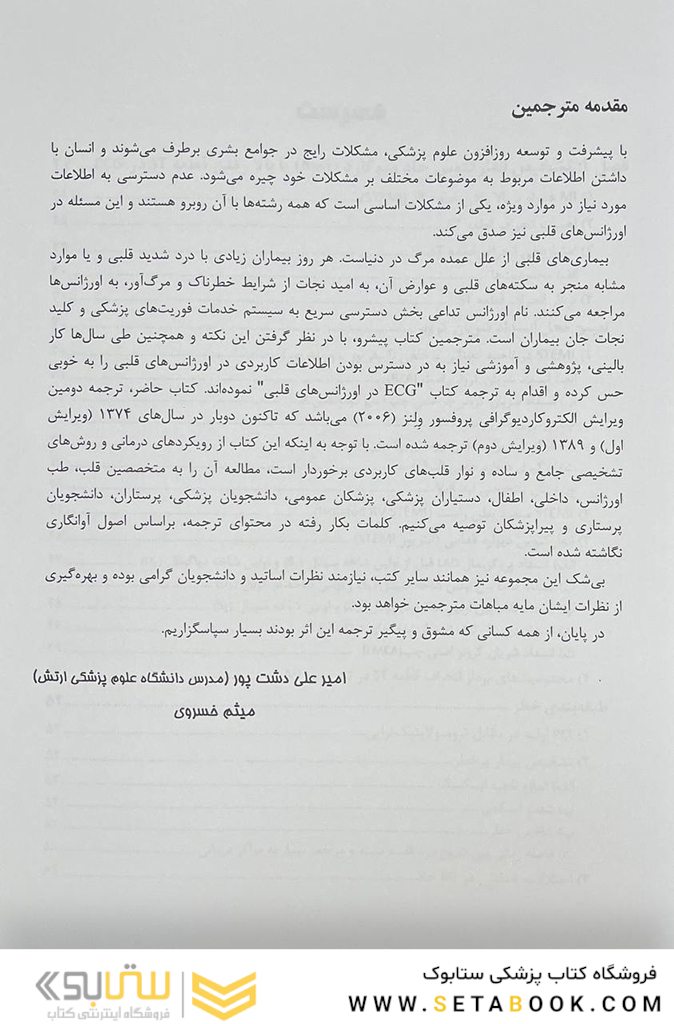 مقدمه مترجمین
با پیشرفت و توسعه روزافزون علوم پزشکی، مشکلات رایج در جوامع بشری برطرف می‌شوند و انسان با
داشتن اطلاعات مربوط به موضوعات مختلف بر مشکلات خود چیره می‌شود. عدم دسترسی به اطلاعات
مورد نیاز در موارد ویژه، یکی از مشکلات اساسی است که همه رشته‌ها با آن روبرو هستند و این مسئله در
اورژانس‌های قلبی نیز صدق می‌کند.
بیماری‌های قلبی از علل عمده مرگ در دنیاست. هر روز بیماران زیادی با درد شدید قلبی و یا موارد
مشابه منجر به سکته‌های قلبی و عوارض آن، به امید نجات از شرایط خطرناک و مرگ‌آور، به اورژانس‌ها
مراجعه می‌کنند. نام اورژانس تداعی بخش دسترسی سریع به سیستم خدمات فوریت‌های پزشکی و کلید
نجات جان بیماران است. مترجمین کتاب پیشرو، با در نظر گرفتن این نکته و همچنین طی سال‌ها کار
بالینی، پژوهشی و آموزشی نیاز به در دسترس بودن اطلاعات کاربردی در اورژانس‌های قلبی را به خوبی
حس کرده و اقدام به ترجمه کتاب "ECG در اورژانس‌های قلبی" نموده‌اند. کتاب حاضر، ترجمه دومین
ویرایش الکتروکاردیوگرافی پروفسور ولِنز (۲۰۰۶) می‌باشد که تاکنون دوبار در سال‌های ۱۳۷۴ (ویرایش
اول) و ۱۳۸۹ (ویرایش دوم) ترجمه شده است. با توجه به اینکه این کتاب از رویکردهای درمانی و روش‌های
تشخیصی جامع و ساده و نوار قلب‌های کاربردی برخوردار است، مطالعه آن را به متخصصین قلب، طب
اورژانس، داخلی، اطفال، دستیاران پزشکی، پزشکان عمومی، دانشجویان پزشکی، پرستاران، دانشجویان
پرستاری و پیراپزشکان توصیه می‌کنیم. کلمات بکار رفته در محتوای ترجمه، براساس اصول آوانگاری
نگاشته شده است.
بی‌شک این مجموعه نیز همانند سایر کتب، نیازمند نظرات اساتید و دانشجویان گرامی بوده و بهره‌گیری
از نظرات ایشان مایه مباهات مترجمین خواهد بود.
در پایان، از همه کسانی که مشوق و پیگیر ترجمه این اثر بودند بسیار سپاسگزاریم.
امیر علی دشت پور (مدرس دانشگاه علوم پزشکی ارتش)
میثم خسروی
فروشگاه کتاب پزشکی ستابوک
WWW.SETABOOK.COM
ستابوک
فروشگاه اینترنتی کتاب